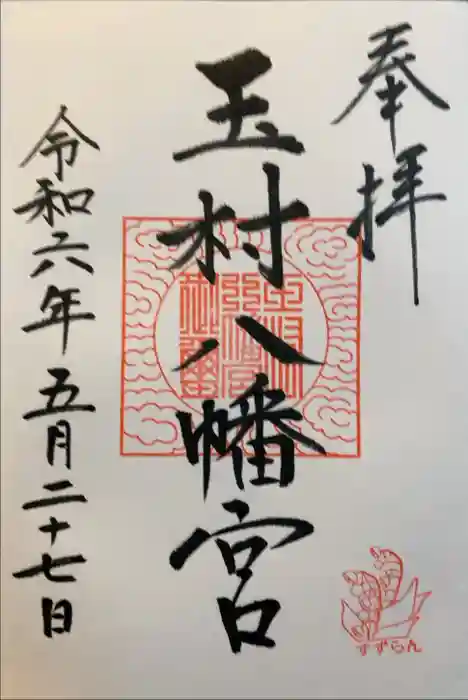 奉拝
玉村八幡宮
令和六年五月二十七日
すずらん